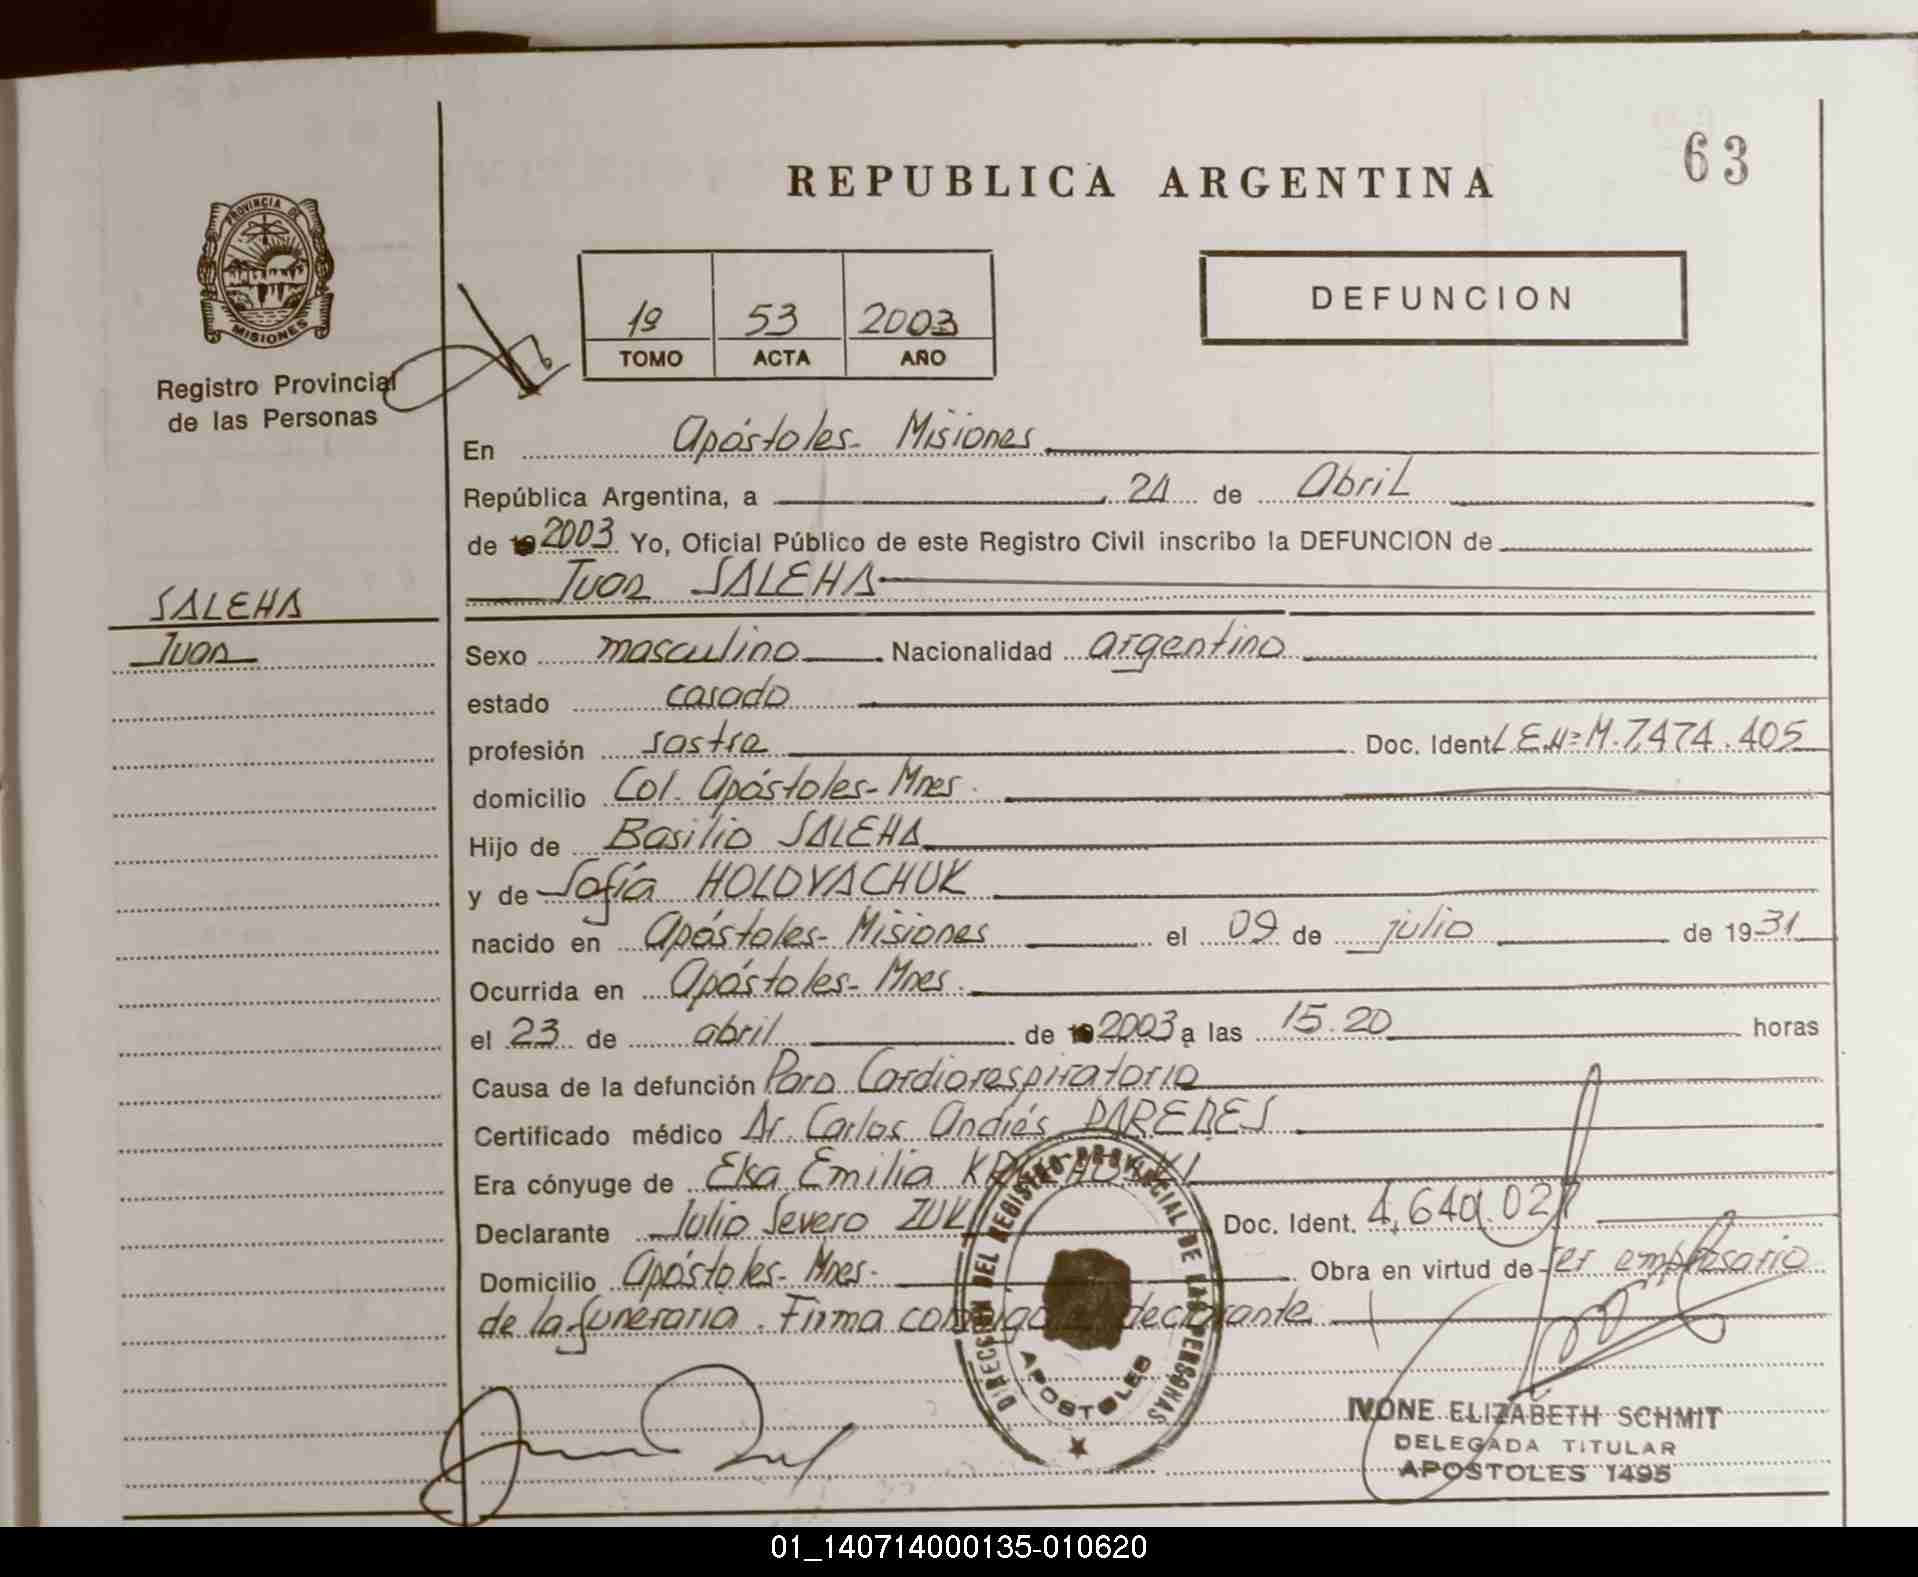 63
REPUBLICA ARGENTINA
PROVINCIA DE
MISIONES
Registro Provincial
de las Personas
1º 53 2003
TOMO ACTA AÑO
DEFUNCION
En Apóstoles- Misiones
República Argentina, a 24 de Abril
de 19 2003 Yo, Oficial Público de este Registro Civil inscribo la DEFUNCION de
Juan SALEHA
SALEHA
Juan
Sexo masculino Nacionalidad argentino
estado casado
profesión sastre Doc. Ident. L.E.Nº M.7.474.405
domicilio Col. Apóstoles- Mnes.
Hijo de Basilio SALEHA
y de Sofía HOLOVACHUK
nacido en Apóstoles- Misiones el 09 de julio de 1931
Ocurrida en Apóstoles- Mnes.
el 23 de abril de 19 2003 a las 15.20 horas
Causa de la defunción Paro Cardiorespiratorio
Certificado médico Dr. Carlos Andrés PAREDES
Era cónyuge de Elsa Emilia
Declarante Julio Severo ZUK Doc. Ident.
Domicilio Apóstoles- Mnes- Obra en virtud de ser empresario
de la funeraria. Firma conmigo el declarante.
DIRECCION DEL REGISTRO PROVINCIAL DE LAS PERSONAS
APOSTOLES
IVONE ELIZABETH SCHMIT
DELEGADA TITULAR
APOSTOLES 1495
01_140714000135-010620